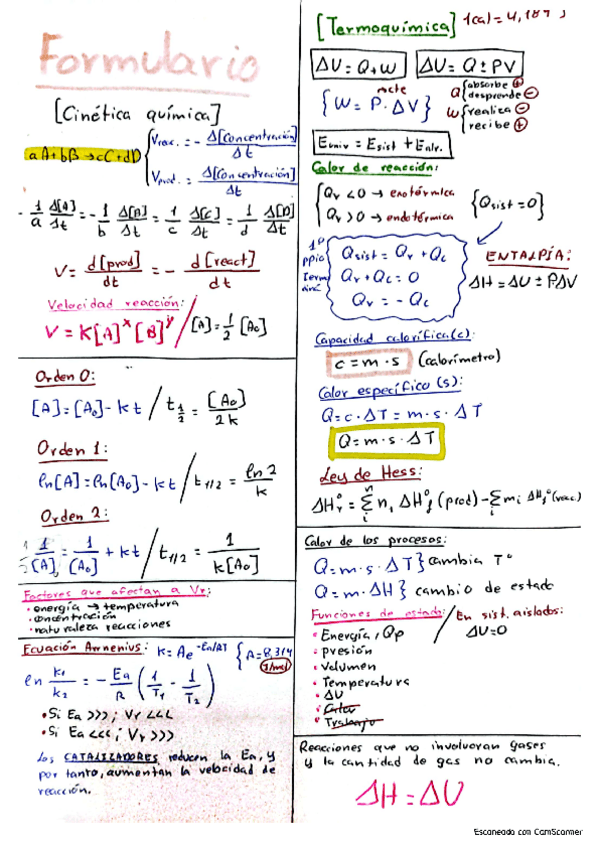 Formulario
[Cinética química]
aA+bB→cC+dD
Vreac. = - Δ[Concentración] / Δt
Vprod. = Δ[Concentración] / Δt
- 1/a Δ[A]/Δt = - 1/b Δ[B]/Δt = 1/c Δ[C]/Δt = 1/d Δ[D]/Δt
V = d[prod]/dt = - d[react]/dt
Velocidad reacción:
V = K[A]^x [B]^y / [A] = 1/2 [A₀]
Orden 0:
[A] = [A₀] - kt / t 1/2 = [A₀]/2k
Orden 1:
ln[A] = ln[A₀] - kt / t1/2 = ln 2/k
Orden 2:
1/[A] = 1/[A₀] + kt / t1/2 = 1/k[A₀]
Factores que afectan a Vr:
• energía → temperatura
• concentración
• naturaleza reacciones
Ecuación Arrhenius: K = Ae^-Ea/RT { A = 8,314 J/mol
ln k₁/k₂ = - Ea/R (1/T₁ - 1/T₂)
• Si Ea >>> ; Vr <<<
• Si Ea <<< ; Vr >>>
Los CATALIZADORES reducen la Ea, y
por tanto, aumentan la velocidad de
reacción.
[Termoquímica] 1cal = 4,184 J
ΔU = Q+W
ΔU = Q ± PV
{W = P · ΔV}
Q absorbe ⊕
desprende ⊖
W realiza ⊖
recibe ⊕
Euniv = Esist + Ealr.
Calor de reacción:
Qr < 0 → exotérmica
Qr > 0 → endotérmica
{Qsist = 0}
1º
ppio
Qsist = Qr + Qc
Qr + Qc = 0
Qr = - Qc
ENTALPÍA:
ΔH = ΔU ± PΔV
Capacidad calorífica(c):
c = m · s (calorímetro)
Calor específico (s):
Q = c · ΔT = m · s · ΔT
Q = m · s · ΔT
Ley de Hess:
ΔH°r = Σ nᵢ ΔH°f (prod) - Σ mᵢ ΔHf°(reac)
Calor de los procesos:
Q = m · s · ΔT } cambia Tº
Q = m · ΔH } cambio de estado
Funciones de estado:
• Energía, Qp
• presión
• Volumen
• Temperatura
• ΔU
• Calor
• Trabajo
En sist. aislados:
ΔU=0
Reacciones que no involucran gases
y la cantidad de gas no cambia.
ΔH = ΔU
Escaneado con CamScanner